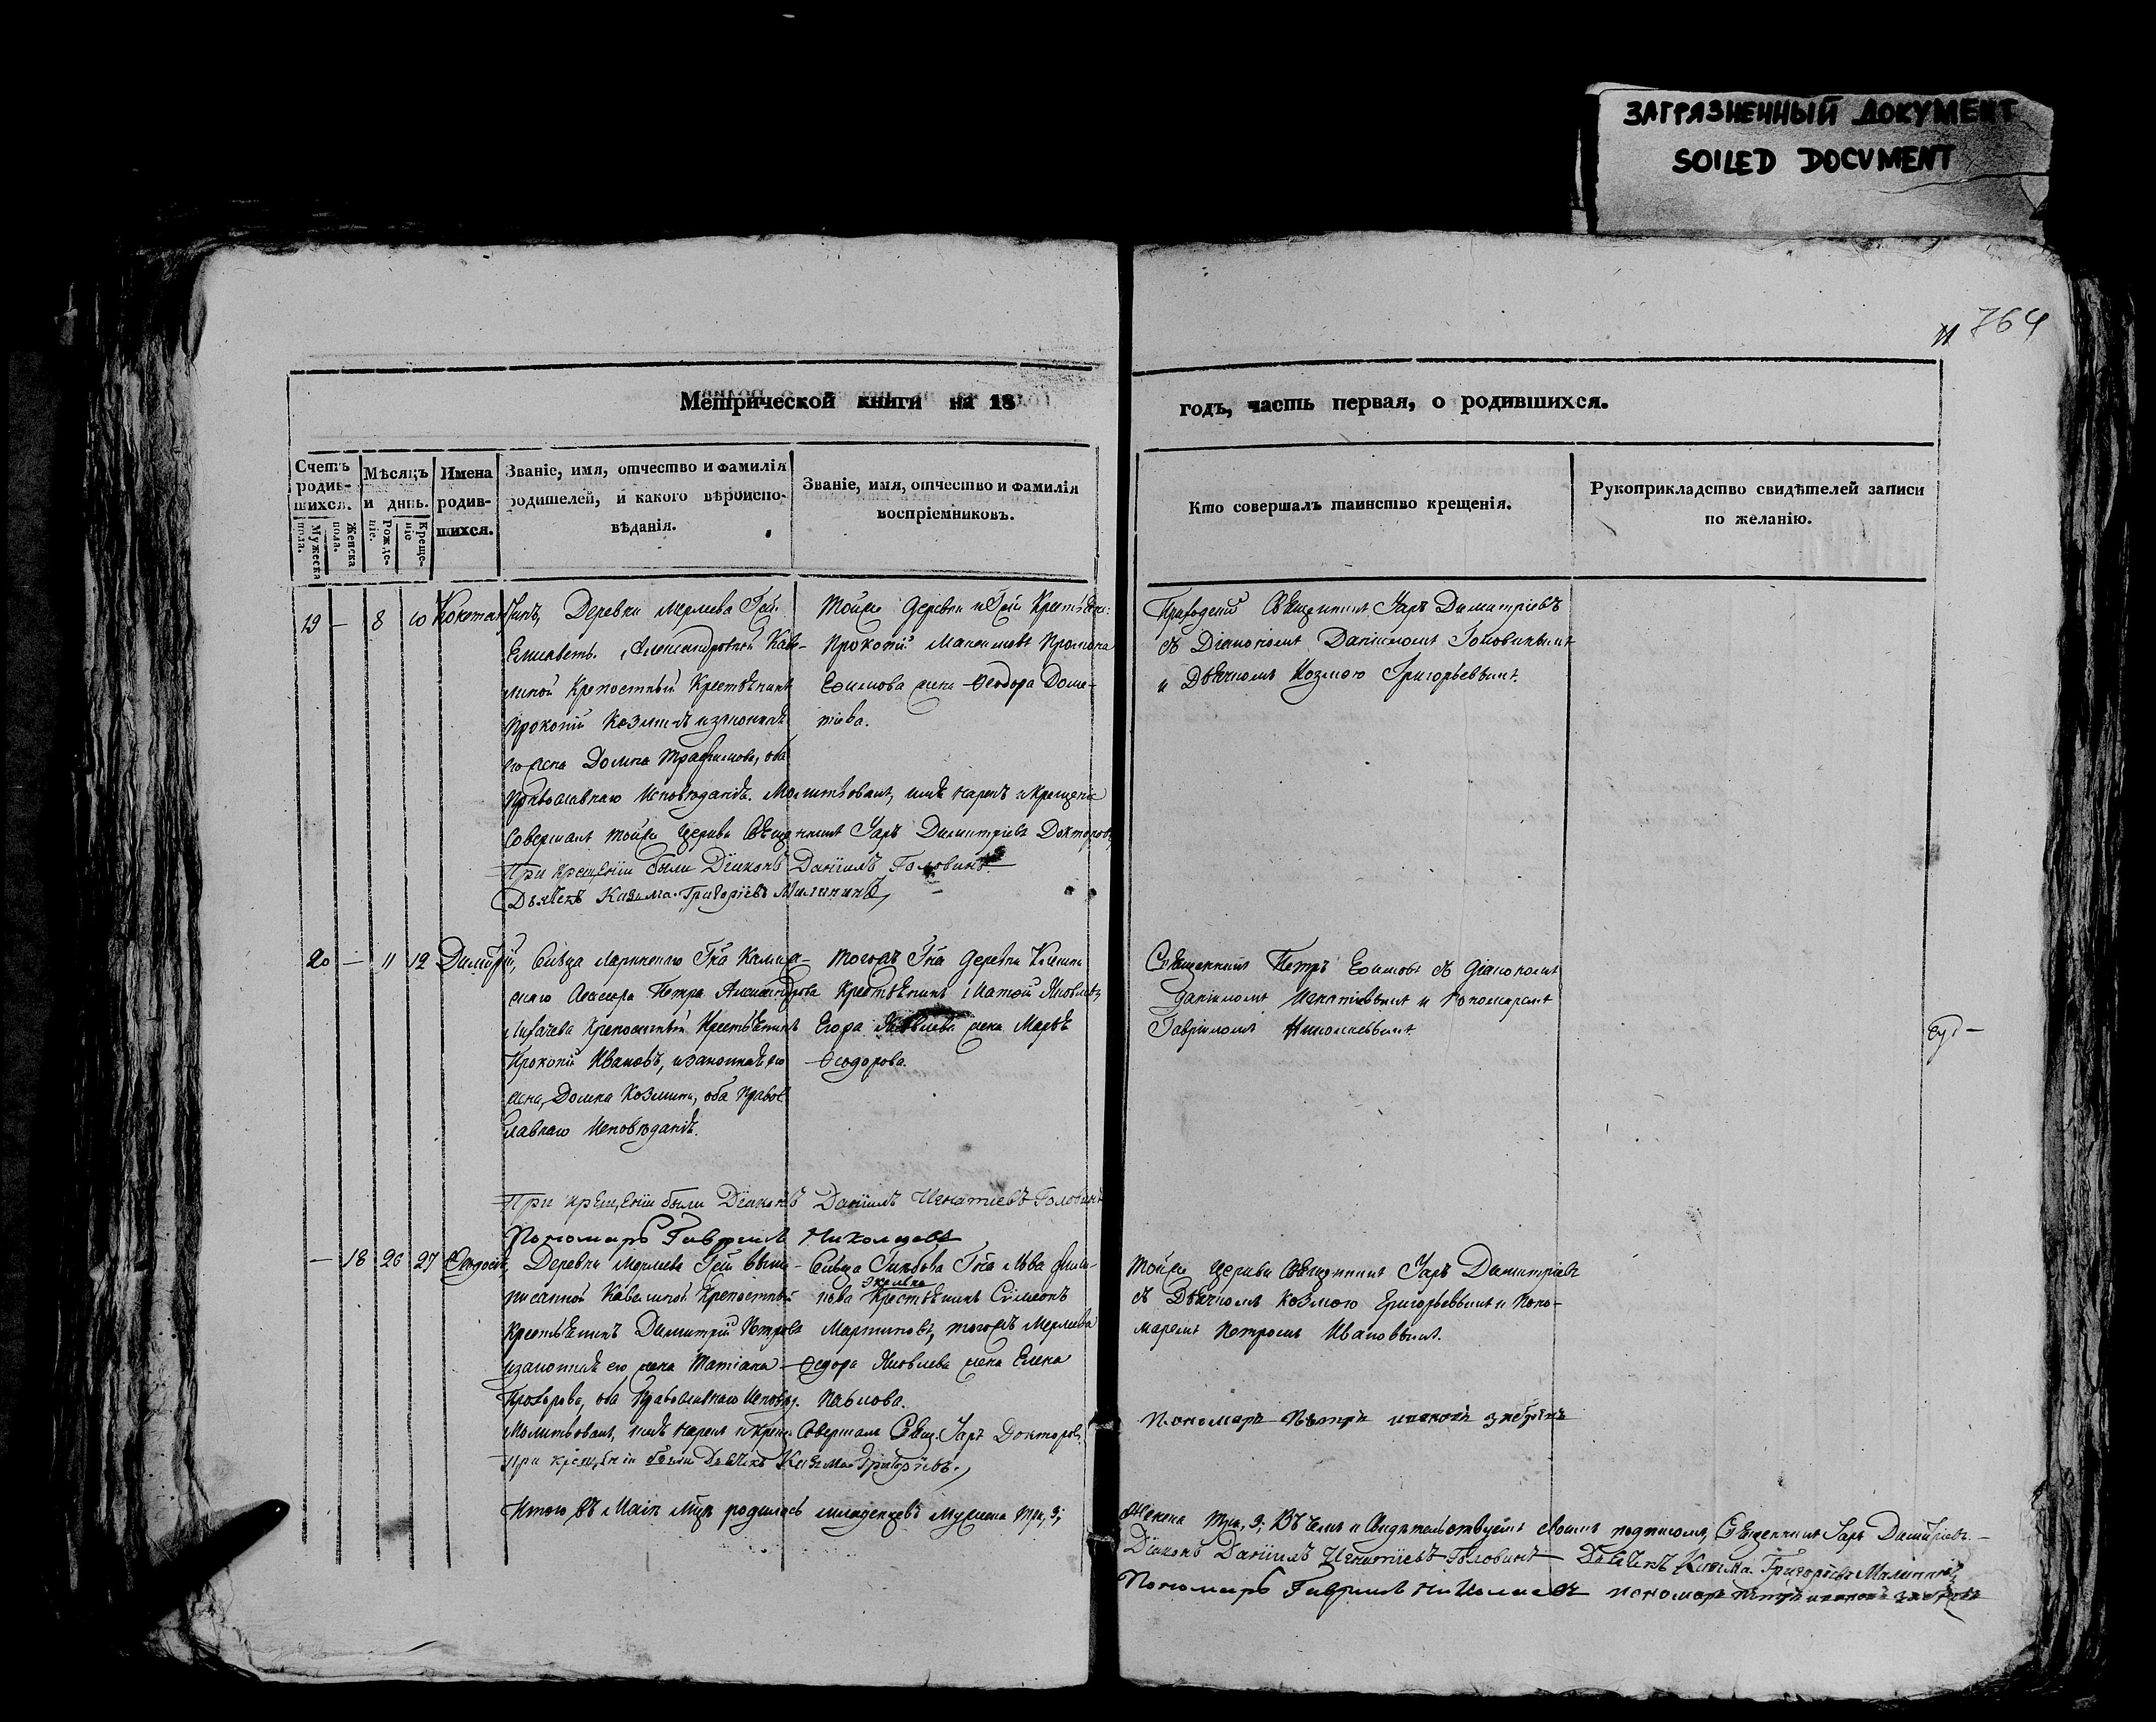 ЗАГРЯЗНЕННЫЙ ДОКУМЕНТ
SOILED DOCUMENT
764
Метрической книги на 18
годъ, часть первая, о родившихся.
Счетъ родив-шихся.
Мужеска пола.
Женска пола.
Мѣсяцъ и день.
Рожде-ніе.
Креще-ніе
Имена родив-шихся.
Званіе, имя, отчество и фамилія
родителей, и какого вѣроиспо-
вѣданія.
Званіе, имя, отчество и фамилія
воспріемниковъ.
Кто совершалъ таинство крещенія.
Рукоприкладство свидѣтелей записи
по желанію.
19 — 8 10
Деревни Мерлева Гжи
Елисаветы Александровной Каве-
линой Крепостный Крестьянинъ
Прокопій Козминъ и законная
его жена Домна Трафимова, оба
Православнаго Исповѣданія. Молитвовалъ, имя нарекъ и крещеніе
совершалъ тойже церкви Священникъ Уаръ Димитріевъ Докторовъ
При крещеніи были Діаконъ Даніилъ Головинъ
Дьячекъ Козьма Григоріевъ Малининъ
Тойже деревни и Гжи Крестьян:
Прокопій Максимовъ
Ефимова жена Ѳеодора Доме-
тіева.
Приходскій Священникъ Уаръ Димитріевъ
съ Діакономъ Даніиломъ Головинымъ
и Дьячкомъ Козмою Григорьевымъ.
20 — 11 12 Димитрій,
Сельца Гна
Петра Александрова
Лихачева Крепостный Крестьянинъ
Прокопій Ивановъ, и законная его
жена, Домна Козмина, оба Правос
лавнаго Исповѣданія.
При крещеніи были Діаконъ Даніилъ Игнатіевъ Головинъ
Пономарь Гавріилъ Николаевъ
Тогожъ Гна деревни
Крестьянинъ Яковлевъ,
Егора Яковлева жена Марья
Ѳеодорова.
Священникъ Петръ Ефимовъ съ діакономъ
Даніиломъ Игнатіевымъ и пономаремъ
Гавріиломъ Николаевымъ
— 18 26 27
Деревни Мерлева Гжи выше-
писанной Кавелиной Крепостный
Крестьянинъ Димитрій Петровъ
и законная его жена Татіана
Прохорова, оба Православнаго Исповѣд.
Молитвовалъ, имя нарекъ и крещ. совершалъ Свящ. Уаръ Докторовъ
При крещеніи были Дьячекъ Козьма Григоріевъ.
Сельца Глѣбова Гна Льва Фили-
пова Крестьянинъ Симеонъ
Мартиновъ, тогожъ Мерлева
Ѳедора Яковлева жена Елена
Павлова.
Тойже церкви Священникъ Уаръ Димитріевъ
съ Дьячкомъ Козмою Григорьевымъ и Поно-
маремъ Петромъ Ивановымъ.
Пономарь Петръ
Итого въ Маіи мцѣ родилось младенцевъ мужеска три, 3;
женска три, 3; Въ чемъ и свидѣтельствуемъ своимъ подписомъ, Священникъ Уаръ Димитріевъ.
Діаконъ Даніилъ Игнатіевъ Головинъ Дьячекъ Козьма Григоріевъ Малининъ
Пономарь Гавріилъ Николаевъ пономарь Петръ